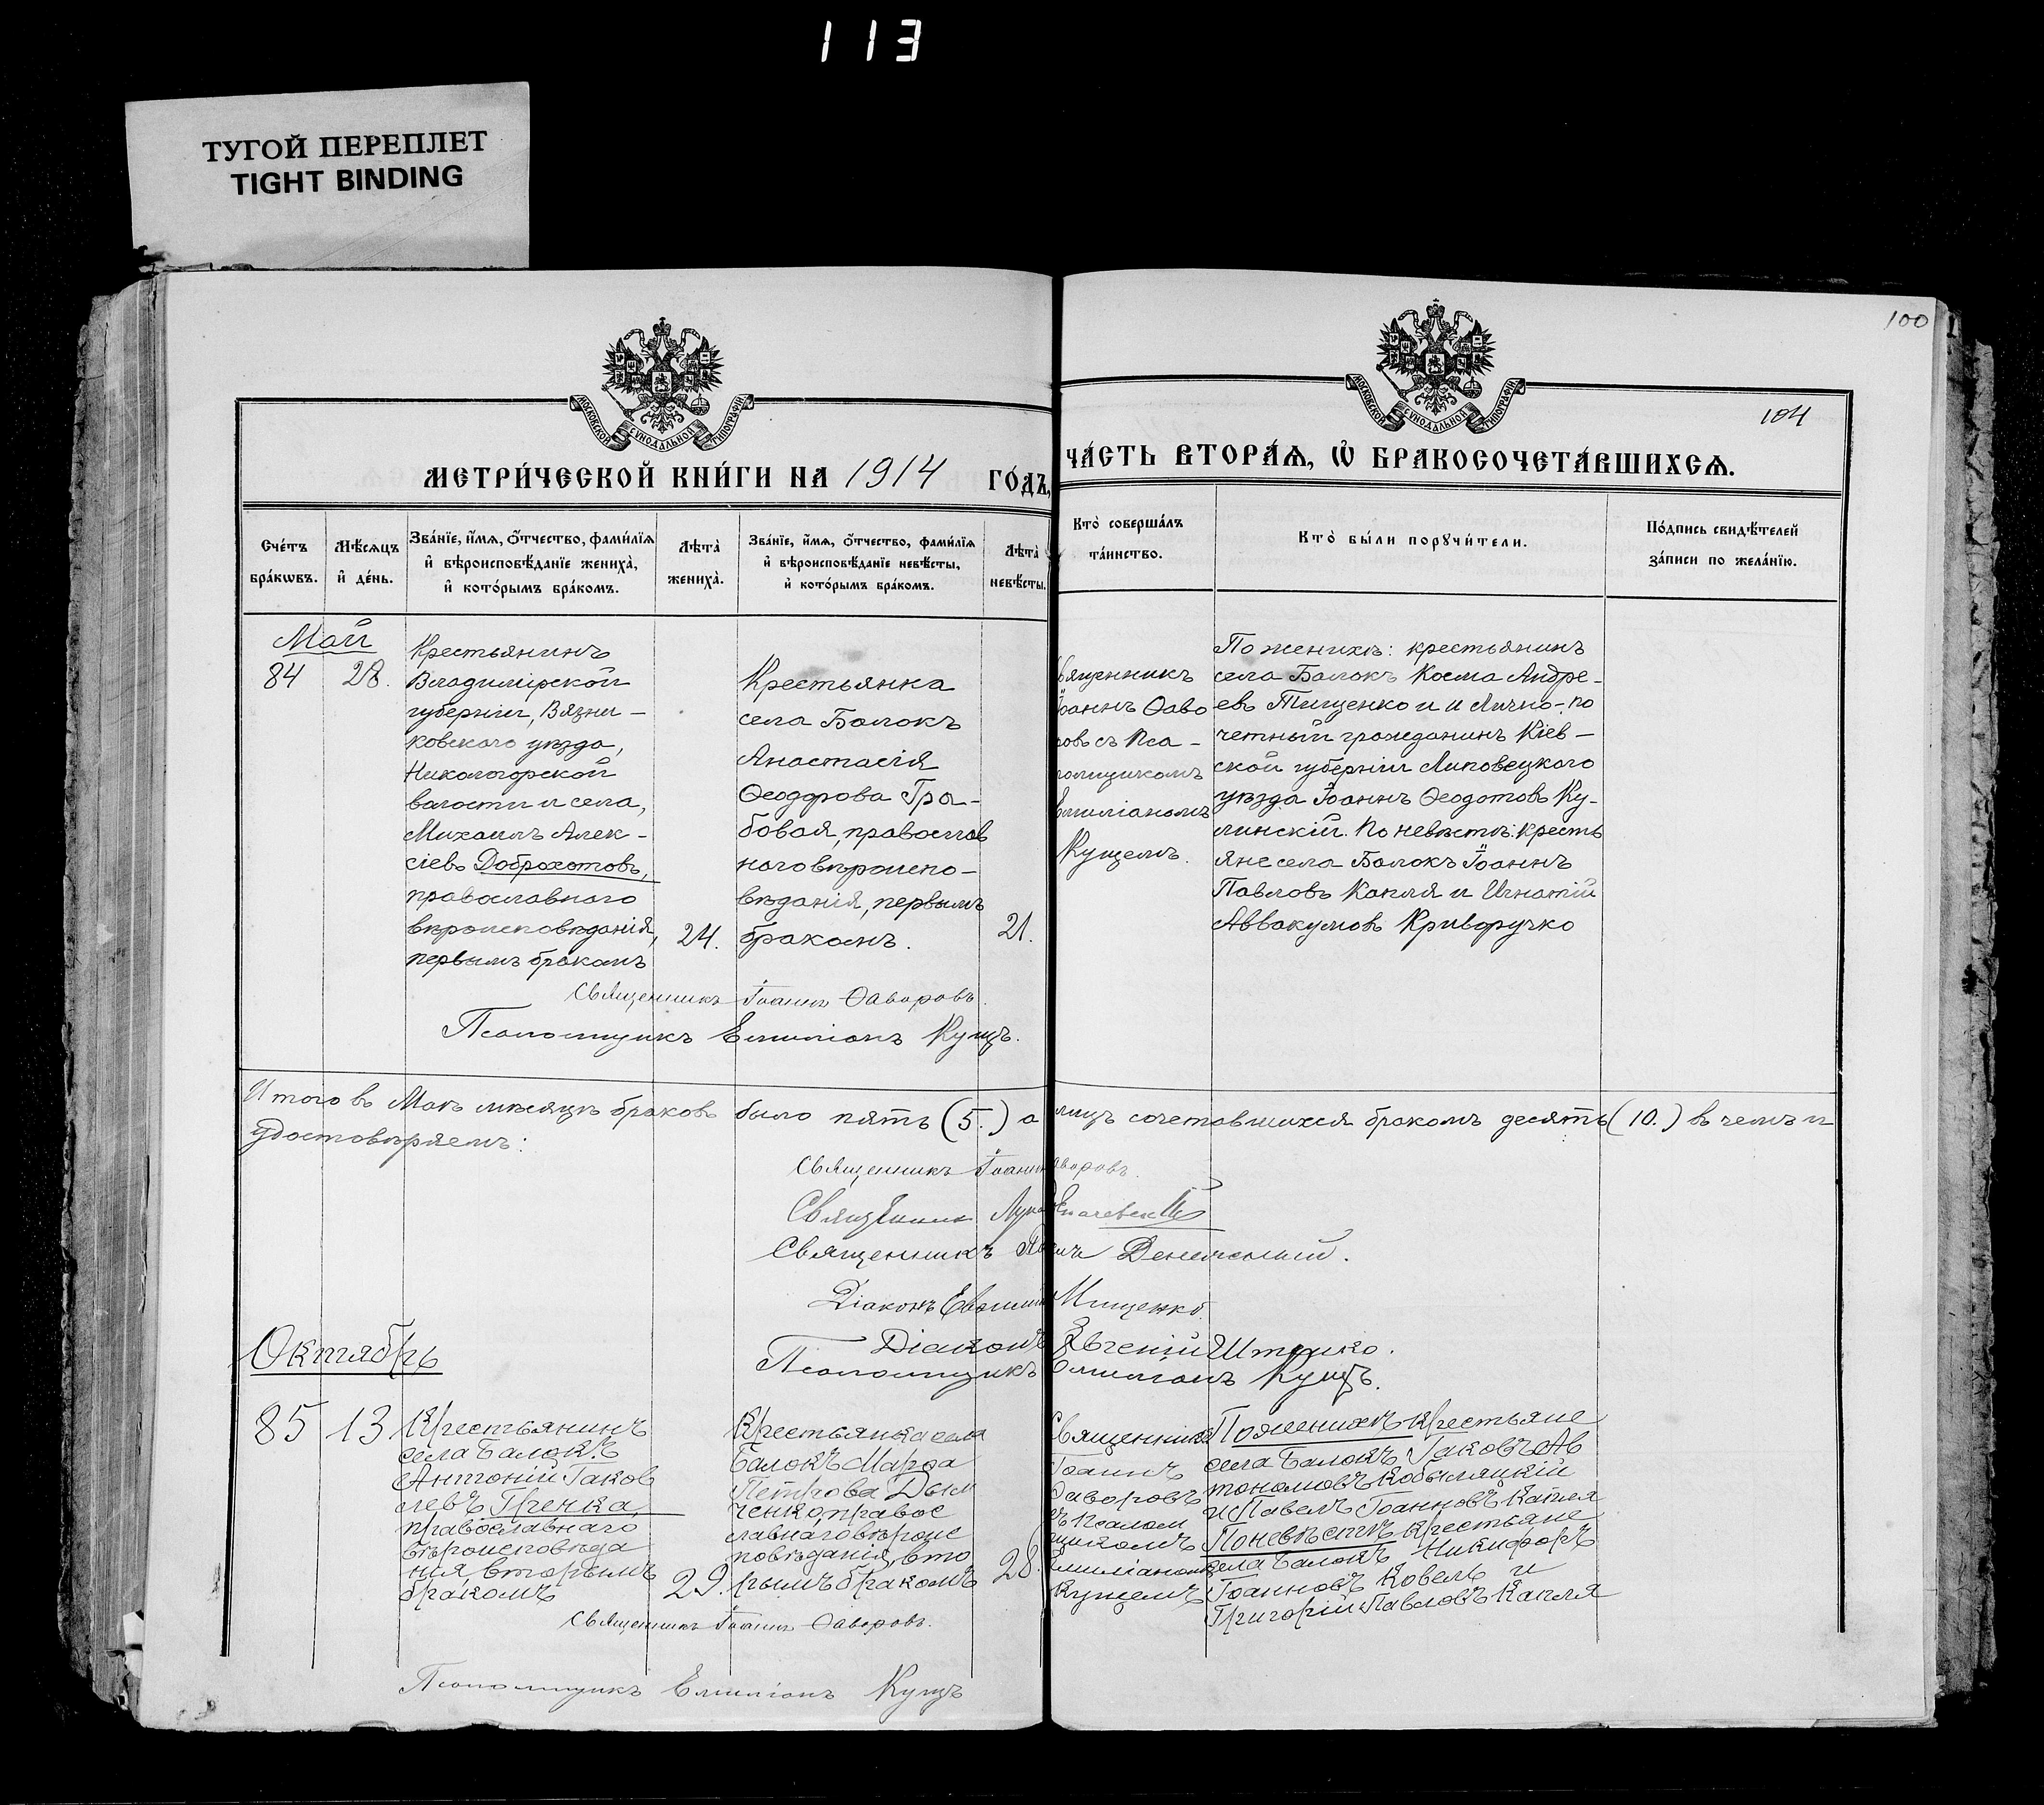 113
ТУГОЙ ПЕРЕПЛЕТ
TIGHT BINDING
100
104
МЕТРИ́ЧЕСКОЙ КНИ́ГИ НА 1914 ГО́ДЪ,
ЧА́СТЬ ВТОРА́Ѧ, Ѡ҆ БРАКОСОЧЕТА́ВШИХСѦ.
Сче́тъ
бра́кѡвъ.
Мѣ́сѧцъ
и҆ де́нь.
Зва́нїе, и҆́мѧ, ѻ҆́тчество, фами́лїѧ
и҆ вѣроисповѣ́данїе жениха̀,
и҆ кото́рымъ бра́комъ.
Лѣта̀
жениха̀.
Зва́нїе, и҆́мѧ, ѻ҆́тчество, фами́лїѧ
и҆ вѣроисповѣ́данїе невѣ́сты,
и҆ кото́рымъ бра́комъ.
Лѣта̀
невѣ́сты.
Кто̀ соверша́лъ
та́инство.
Кто̀ бы́ли порꙋчи́тели.
По́дпись свидѣ́телей
за́писи по жела́нїю.
Май
84
28.
Крестьянинъ
Владимірской
губерніи, Вязни-
ковского уѣзда,
Никологорской
волости и села,
Михаилъ Алек-
сіевъ Доброхотовъ,
православного
вѣроисповѣданія,
первымъ бракомъ
24.
Крестьянка
села Балокъ
Анастасія
Ѳеодорова Гра-
бовая, православ
ного вѣроиспо-
вѣданія, первымъ
бракомъ.
21.
вященникъ
Іоаннъ Ѳаво
ровъ съ Пса-
ломщикомъ
Емиліаномъ
Кущемъ.
По женихѣ: крестьянинъ
села Балокъ Косма Андре-
евъ Тищенко и и Лично-по
четный гражданинъ Кіев-
ской губерніи Липовецкого
уѣзда Іоаннъ Ѳеодотовъ Ку-
линскій. По невѣстѣ: кресть
яне села Балокъ Іоаннъ
Павловъ Капля и Игнатій
Аввакумовъ Криворучко
Священникъ Іоаннъ Ѳаворовъ.
Псаломщикъ Емиліанъ Кущъ.
Итого въ Маѣ мѣсяцѣ браковъ было пять (5.) а лицъ сочетавшихся бракомъ десять (10.) въ чемъ и
удостовѣряемъ:
Священникъ Іоаннъ аворовъ.
Священникъ Лука
Священникъ
Діаконъ Евфимій Мищенко.
Діаконъ Евгеній
Псаломщикъ Емиліанъ Кущъ.
Октябрь
85
13
Крестьянинъ
села Балокъ
Антоній Іаков
левъ Гречка,
православнаго
вѣроисповѣда
нія, вторымъ
бракомъ
29.
Крестьянка села
Балокъ Марѳа
Петрова Дым
ченко, правос
лавнаго вѣроис
повѣданія, вто
рымъ бракомъ
28.
Священникъ
Іоаннъ
Ѳаворовъ
съ Псалом
щикомъ
Емиліаномъ
Кущемъ
По женихѣ крестьяне
села Балокъ Іаковъ Ав
тономовъ Кобыляцкій
и Павелъ Іоанновъ Капля
По невѣстѣ крестьяне
села Балокъ Никифоръ
Іоанновъ Ковель и
Григорій Павловъ Капля
Священникъ Іоаннъ Ѳаворовъ.
Псаломщикъ Емиліанъ Кущъ